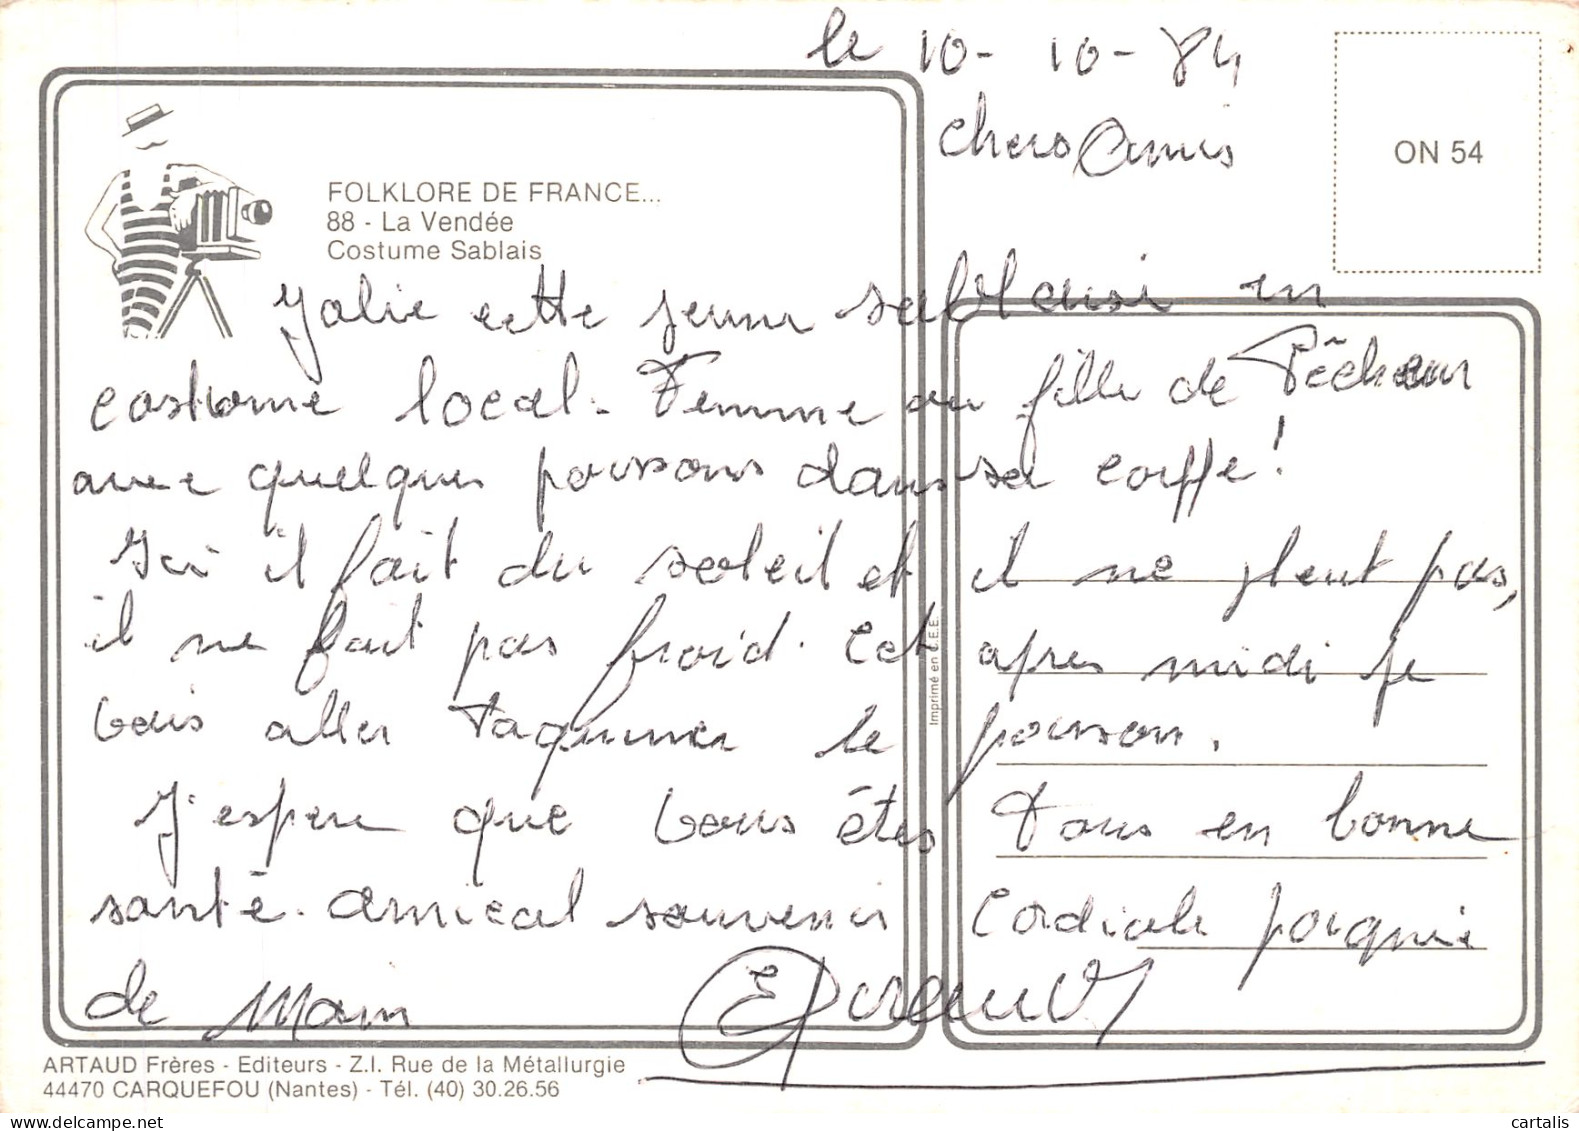 le 10-10-84
Chers Amis
ON 54
FOLKLORE DE FRANCE...
88 - La Vendée
Costume Sablais
Jolie cette jeune sablaise en
costume local. Femme ou fille de Pêcheur
avec quelques poissons dans sa coiffe!
Ici il fait du soleil et il ne pleut pas,
il ne fait pas froid. Cet après midi je
vais aller taquiner le poisson.
J'espère que vous êtes tous en bonne
santé. Amical souvenir Cordiale poignée
de Main
Imprimé en C.E.E.
ARTAUD Frères - Editeurs - Z.I. Rue de la Métallurgie
44470 CARQUEFOU (Nantes) - Tél. (40) 30.26.56
cartalis